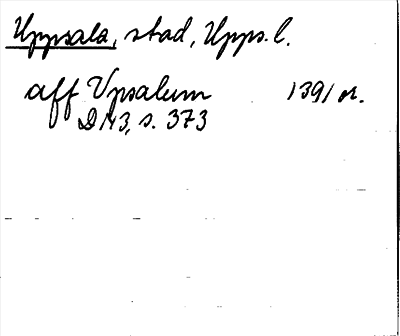 Uppsala, stad, Upps. l.
aff Vpsalum 1391 or.
DN 3, s. 373